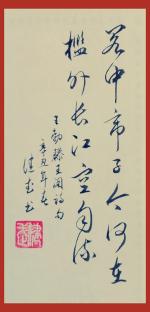 阁中帝子今何在
槛外长江空自流
王勃滕王阁诗句
辛丑年春
健武书